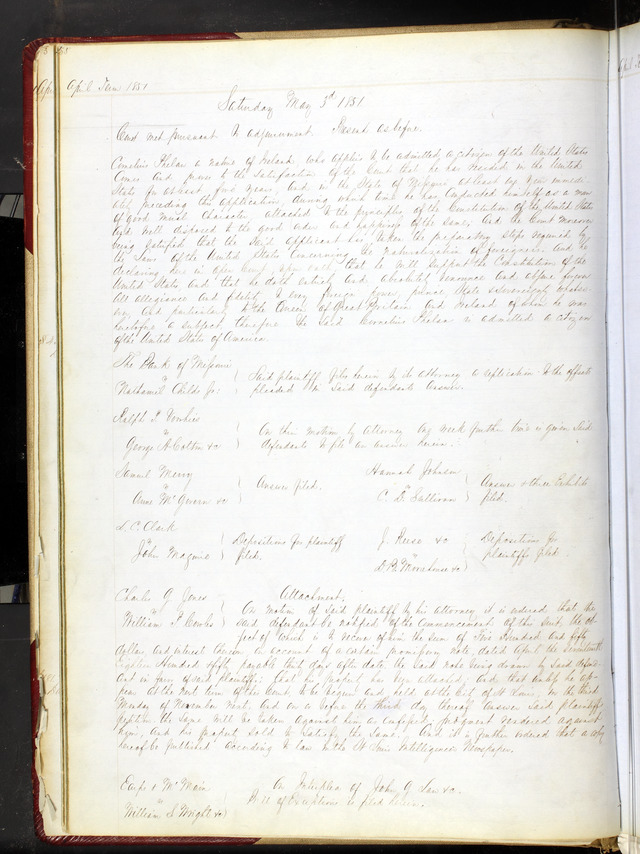 April Term 1851
Saturday May 3rd 1851
Court met pursuant to adjournment Present as before.
Cornelius Phelan a native of Ireland, who applies to be admitted a citizen of the United States
Comes and proves to the satisfaction of the Court that he has resided in the United
States for at least five years, and in the State of Missouri at least one year immedi-
ately preceding this application, during which time he has conducted himself as a man
of good moral character, attached to the principles of the Constitution of the United States
and well disposed to the good order and happiness of the same, And the Court moreover
being satisfied that the said applicant has taken the preparatory steps required by
the Laws of the United States concerning the naturalization of foreigners And he
declaring here in open court, upon oath, that he will support the Constitution of the
United States and that he doth entirely and absolutely renounce and abjure forever
all allegiance and fidelity to every foreign power, prince, State & Sovereignty whatso-
ever, and particularly to the Queen of Great Britain and Ireland of whom he was
heretofore a subject, therefore the said Cornelius Phelan is admitted a citizen
of the United States of America.
The Bank of Missouri
vs
Nathaniel Childs Jr.
Said plaintiff files herein by its attorney a replication to the offsets
pleaded in said defendants answer.
Ralph P.
vs
George H Colton &c
On their motion by Attorney one week further time is given said
defendants to file an answer herein.
Samuel Merry
vs
Anne McGovern &c
Answer filed.
Hannah Johnson
vs
C. D. Sullivan
Answer & three Exhibits
filed.
L. C. Clark
vs
John Maguire
Depositions for plaintiff
filed.
J. Reese &c
vs
&c
Depositions for
plaintiffs filed.
Charles G Jones
vs
William P Combs
Attachment.
On motion of said plaintiff by his attorney it is ordered that the
said defendant be notified of the commencement of this suit, the ob-
ject of which is to recover of him the sum of Five Hundred and fifty
dollars, and interest thereon on account of a certain promissory note, dated April the Seventeenth
Eighteen Hundred & fifty payable thirty days after date the said note being drawn by said defend-
ant in favor of said plaintiff: that his property has been attached; And that unless he ap-
pear at the next term of this Court, to be begun and held at the City of St Louis, on the third
Monday of November next, And on or before the third day thereof answer said plaintiff's
petition the same will be taken against him as confessed, judgment rendered against
him, and his property sold to satisfy the same. And it is further ordered that a copy
hereof be published according to law in the St Louis Intelligencer Newspaper.
& McMain
vs
William S. Wright &c
On Interplea of John G Law &c.
Bill of Exceptions is filed herein.